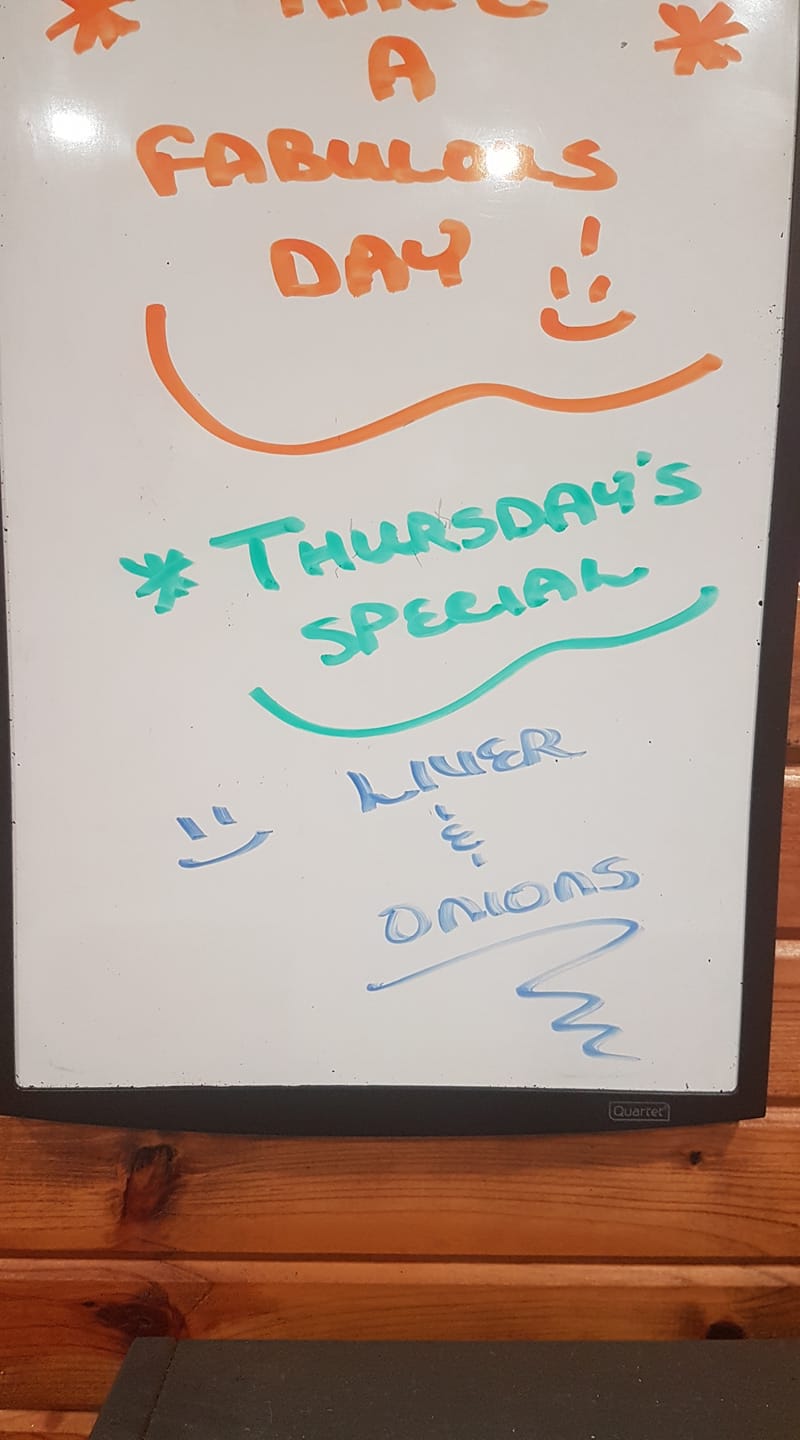 * HAVE *
A
FABULOUS
DAY !
* THURSDAY'S
SPECIAL
LIVER
&
ONIONS
Quartet